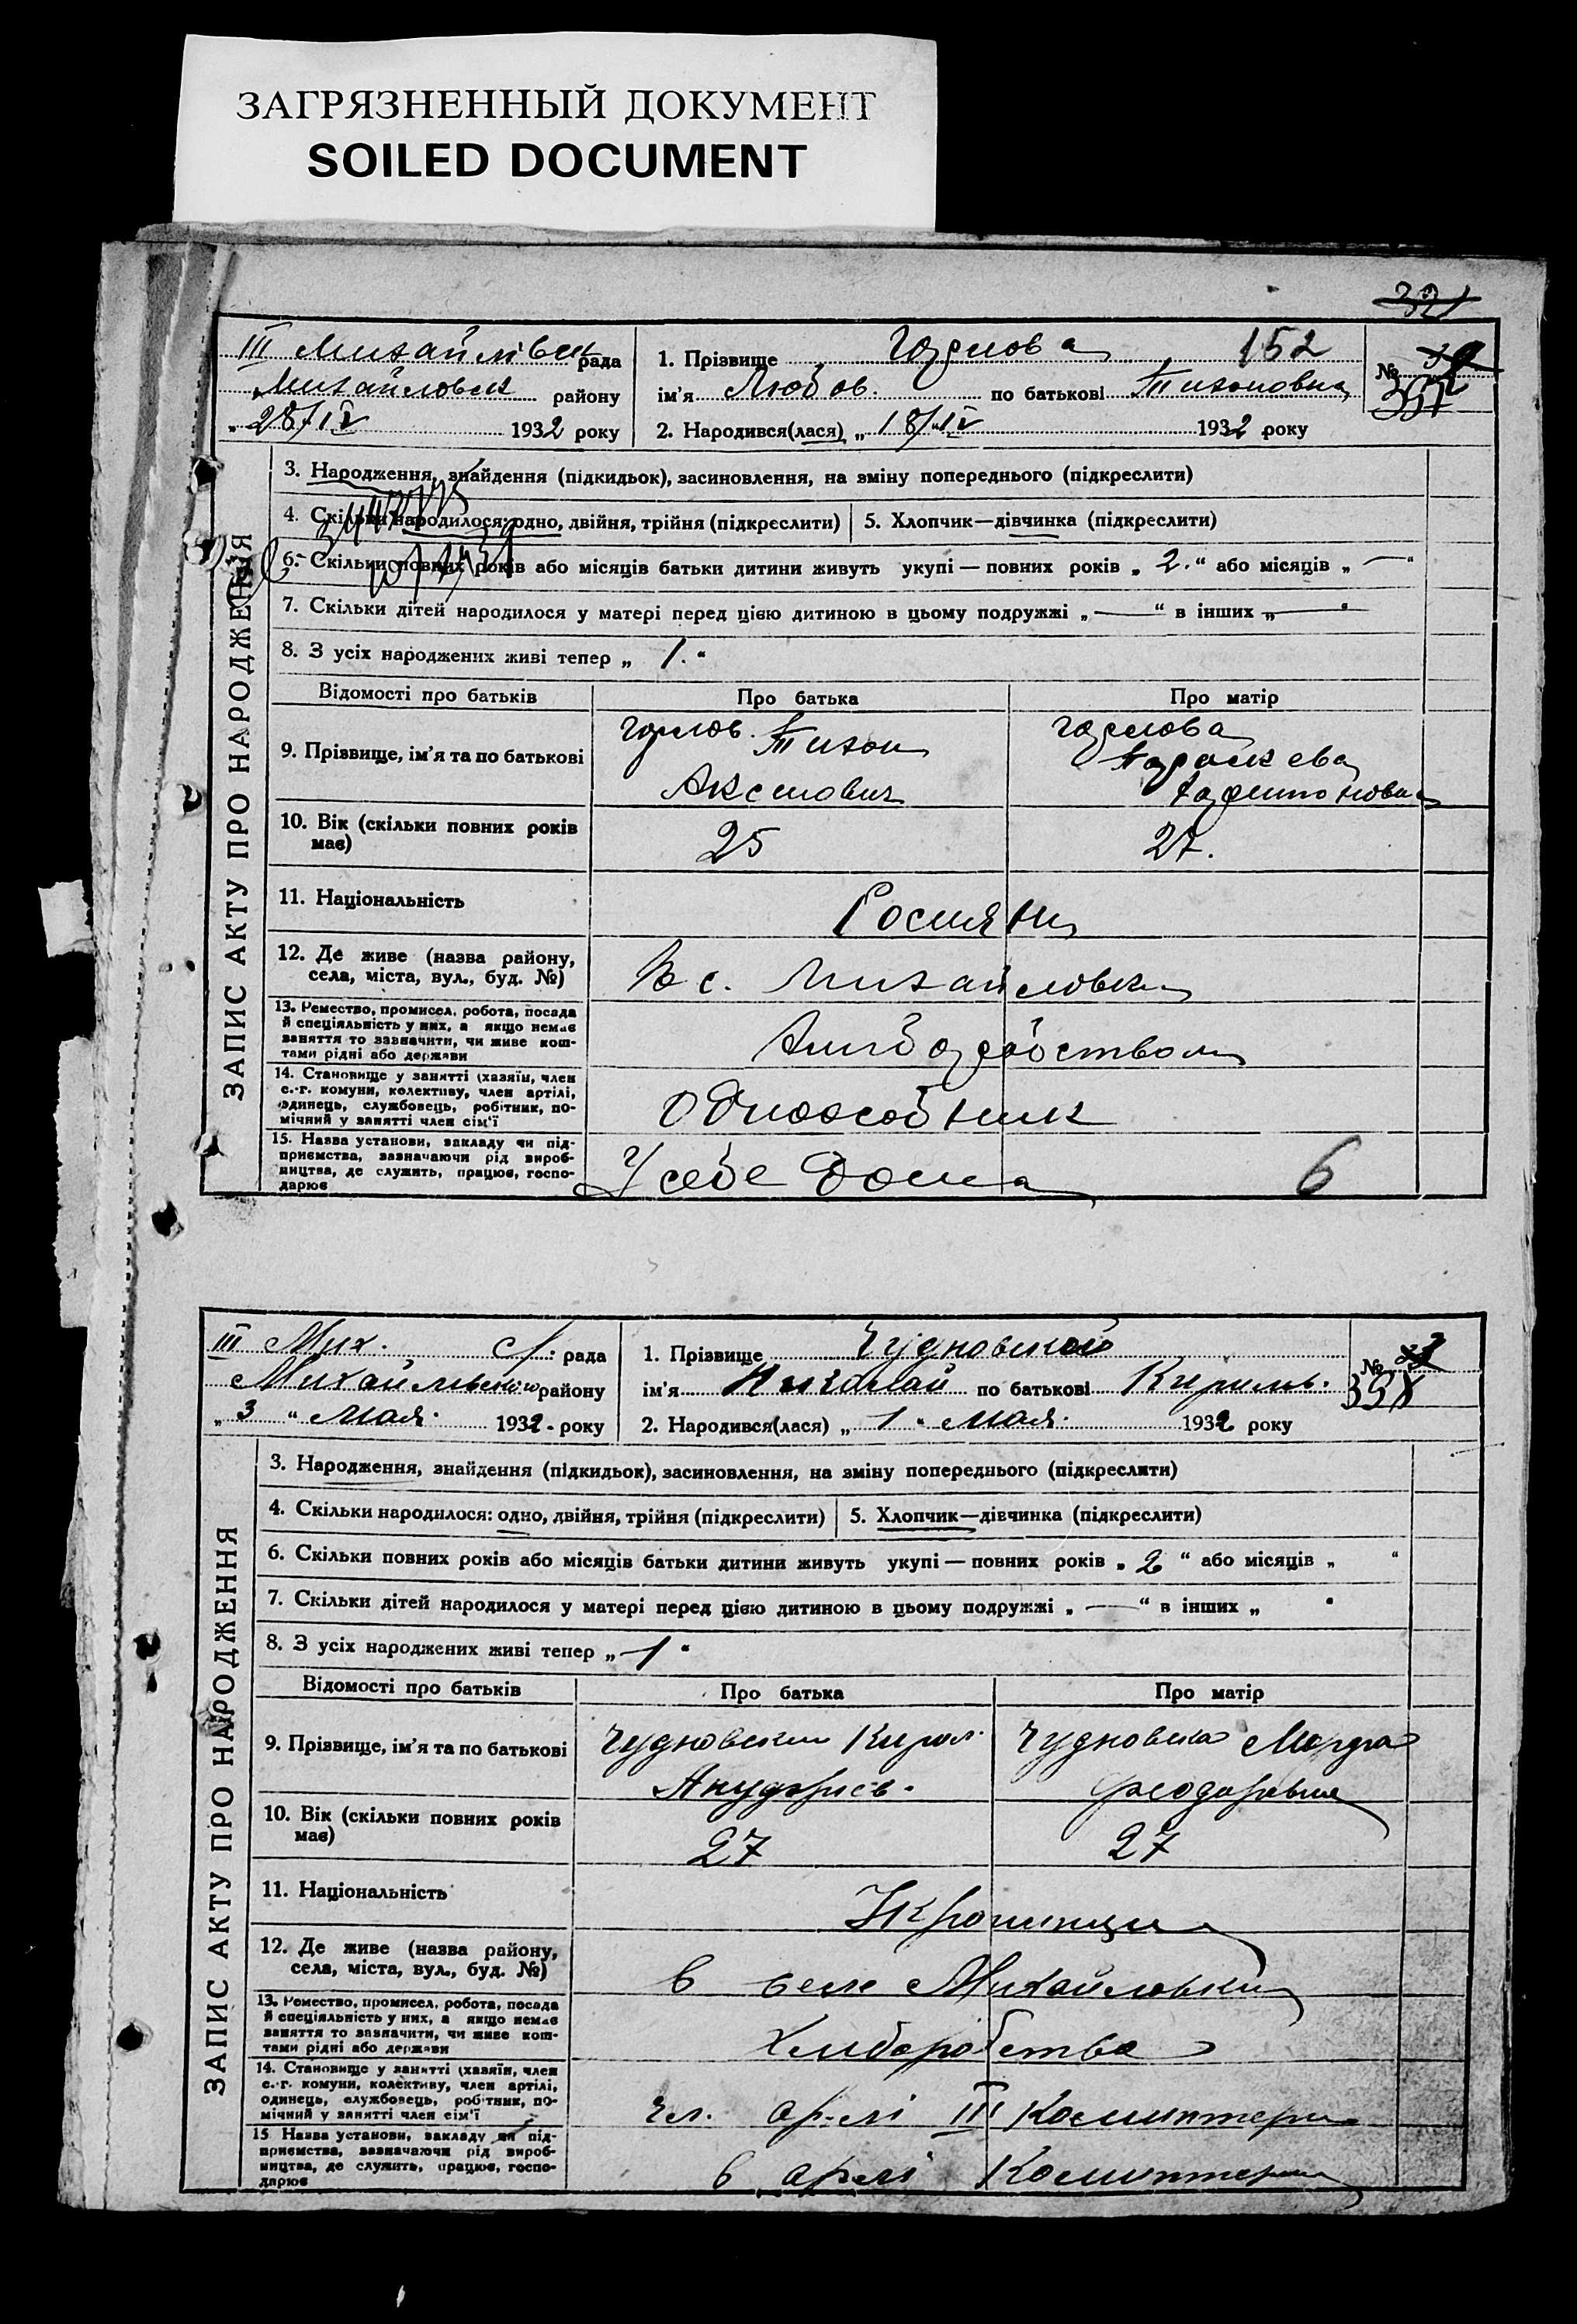 ЗАГРЯЗНЕННЫЙ ДОКУМЕНТ
SOILED DOCUMENT
321
III Михайлівск рада
Михайловск району
„28/IV 1932 року
1. Прізвище 152
ім'я Любов. по батькові Тихоновна
2. Народився(лася) „18/IV 1932 року
№
ЗАПИС АКТУ ПРО НАРОДЖЕННЯ
3. Народження, знайдення (підкидьок), засиновлення, на зміну попереднього (підкреслити)
4. Скільки народилося: одно, двійня, трійня (підкреслити) 5. Хлопчик—дівчинка (підкреслити)
6. Скільки повних років або місяців батьки дитини живуть укупі — повних років „ 2. “ або місяців „ — “
7. Скільки дітей народилося у матері перед цією дитиною в цьому подружжі „ — “ в інших „ — “
8. З усіх народжених живі тепер „ 1. “
Відомості про батьків Про батька Про матір
9. Прізвище, ім'я та по батькові
Тихон
10. Вік (скільки повних років має) 25 27.
11. Національність Росияни
12. Де живе (назва району, села, міста, вул., буд. №) В с. Михайловки
13. Ремество, промисел, робота, посада й спеціяльність у них, а якщо немає заняття то зазначити, чи живе коштами рідні або держави
14. Становище у занятті (хазяїн, член с.-г. комуни, колективу, член артілі, одинець, службовець, робітник, помічний у занятті член сім'ї Одноособник
15. Назва установи, закладу чи підприємства, зазначаючи рід виробництва, де служить, працює, господарює У себе дома 6
III Мих. с/. рада
Михайлівского району
„ 3 “ мая. 1932 - року
1. Прізвище Чудновской
ім'я Николай по батькові Кирилв.
2. Народився(лася) „ 1 “ мая. 1932 року
№
398
ЗАПИС АКТУ ПРО НАРОДЖЕННЯ
3. Народження, знайдення (підкидьок), засиновлення, на зміну попереднього (підкреслити)
4. Скільки народилося: одно, двійня, трійня (підкреслити) 5. Хлопчик—дівчинка (підкреслити)
6. Скільки повних років або місяців батьки дитини живуть укупі — повних років „ 2 “ або місяців „ “
7. Скільки дітей народилося у матері перед цією дитиною в цьому подружжі „ — “ в інших „ “
8. З усіх народжених живі тепер „ 1 “
Відомості про батьків Про батька Про матір
9. Прізвище, ім'я та по батькові Чудновский Кирил Чудновска
Феодоровна
10. Вік (скільки повних років має) 27 27
11. Національність Украинци
12. Де живе (назва району, села, міста, вул., буд. №) в селе Михайловки
13. Ремество, промисел, робота, посада й спеціяльність у них, а якщо немає заняття то зазначити, чи живе коштами рідні або держави Хлиборобства
14. Становище у занятті (хазяїн, член с.-г. комуни, колективу, член артілі, одинець, службовець, робітник, помічний у занятті член сім'ї Чл. ар-лі III Коминтерн
15 Назва установи, закладу чи підприємства, зазначаючи рід виробництва, де служить, працює, господарює в ар-лі Коминтерна